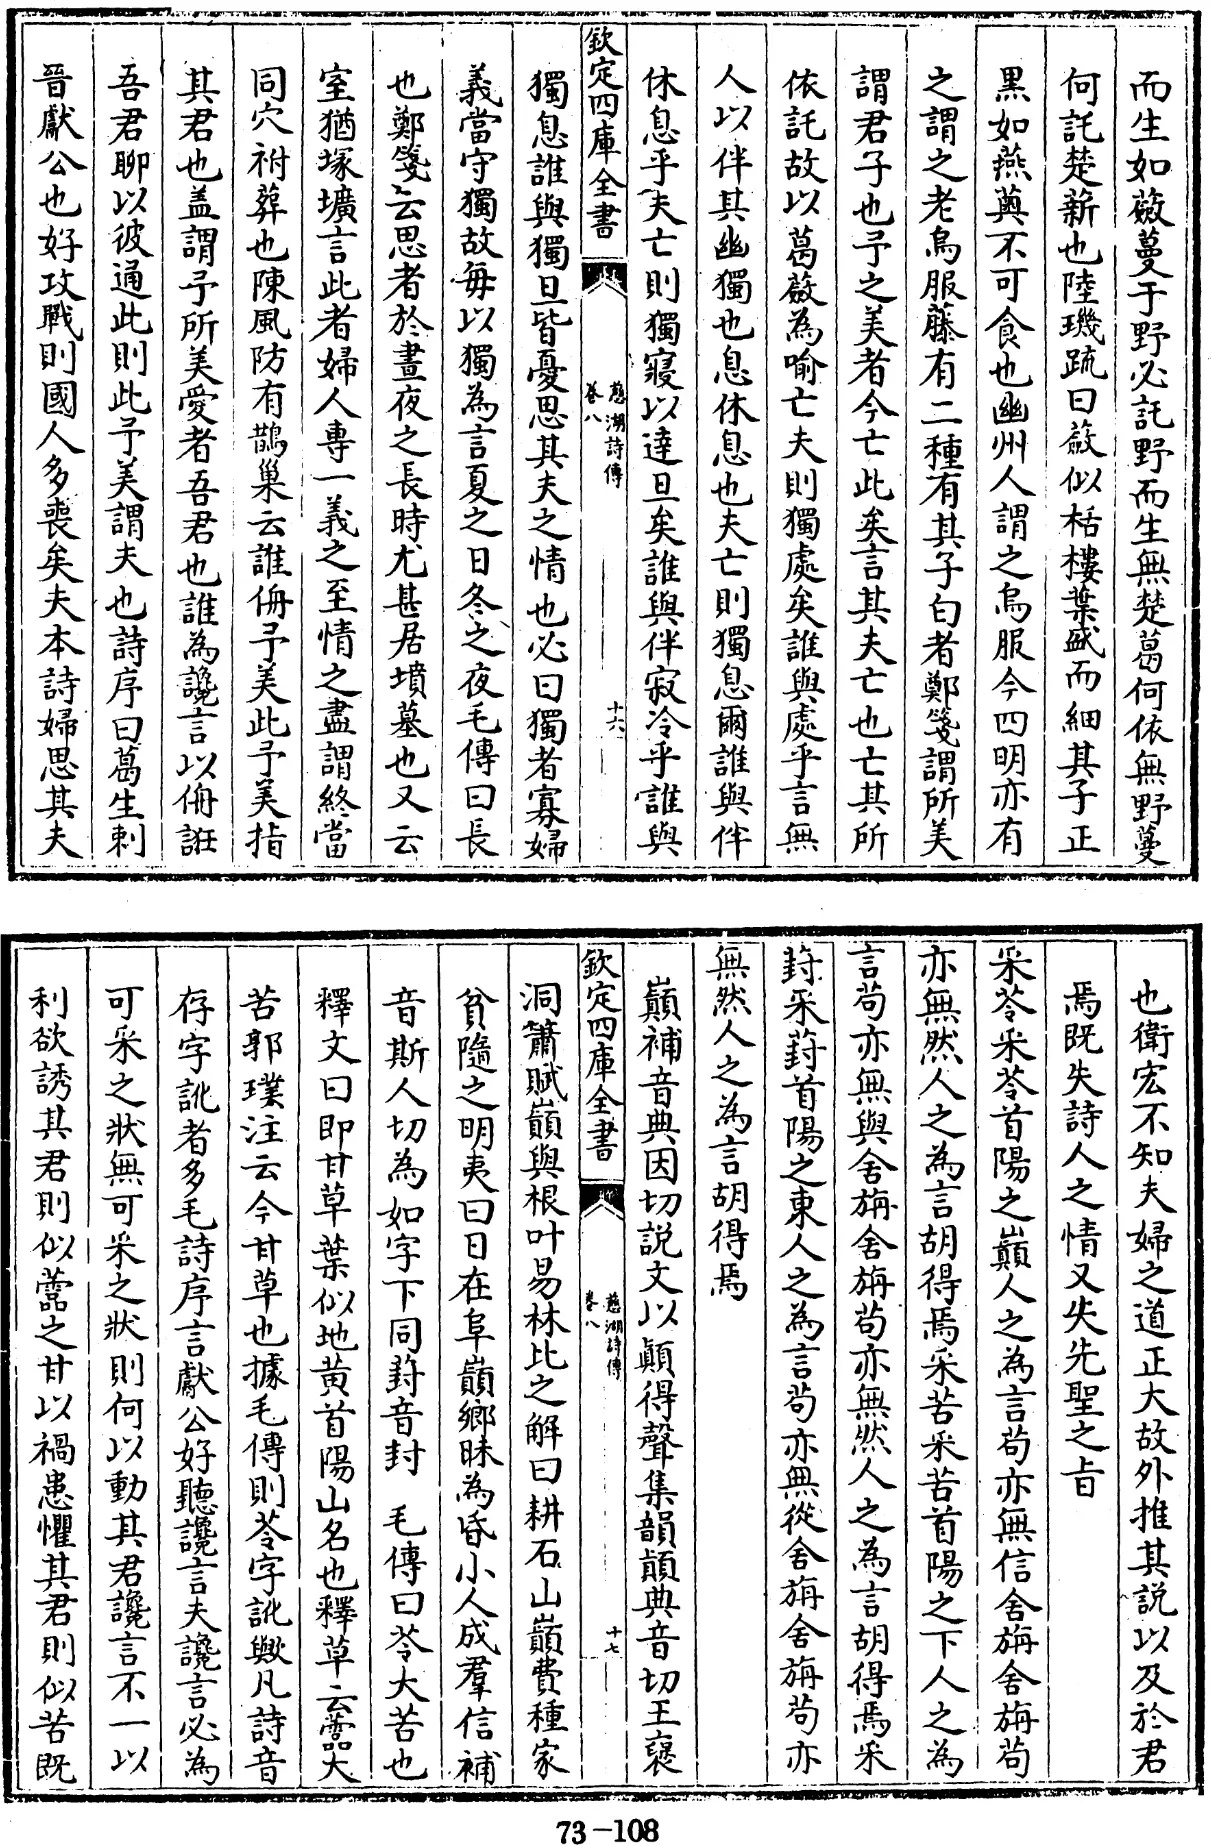 而生如蘞蔓于野必託野而生無楚葛何依無野蔓
何託楚薪也陸璣疏曰蘞似栝樓葉盛而細其子正
黑如燕薁不可食也幽州人謂之烏服今四明亦有
之謂之老烏服藤有二種有其子白者鄭箋謂所美
謂君子也予之美者今亡此矣言其夫亡也亡其所
依託故以葛蘞為喻亡夫則獨處矣誰與處乎言無
人以伴其幽獨也息休息也夫亡則獨息爾誰與伴
休息乎夫亡則獨寢以達旦矣誰與伴寂冷乎誰與
欽定四庫全書
慈湖詩傳
卷八
十六
獨息誰與獨旦皆憂思其夫之情也必曰獨者寡婦
義當守獨故每以獨為言夏之日冬之夜毛傳曰長
也鄭箋云思者於晝夜之長時尤甚居墳墓也又云
室猶塚壙言此者婦人專一義之至情之盡謂終當
同穴祔葬也陳風防有鵲巢云誰侜予美此予美指
其君也盖謂予所美愛者吾君也誰為讒言以侜誑
吾君聊以彼通此則此予美謂夫也詩序曰葛生刺
晉獻公也好攻戰則國人多喪矣夫本詩婦思其夫
也衛宏不知夫婦之道正大故外推其説以及於君
焉既失詩人之情又失先聖之㫖
采苓采苓首陽之巔人之為言苟亦無信舍旃舍旃苟
亦無然人之為言胡得焉采苦采苦首陽之下人之為
言苟亦無與舍旃舍旃苟亦無然人之為言胡得焉采
葑采葑首陽之東人之為言苟亦無從舍旃舍旃苟亦
無然人之為言胡得焉
巔補音典因切説文以顛得聲集韻顛典音切王褒
欽定四庫全書
慈湖詩傳
卷八
十七
洞簫賦巔與根叶易林比之解曰耕石山巔費種家
貧隨之明夷曰日在阜巔鄉昧為昏小人成羣信補
音斯人切為如字下同葑音封 毛傳曰苓大苦也
釋文曰即甘草葉似地黄首陽山名也釋草云蘦大
苦郭璞注云今甘草也據毛傳則苓字訛歟凡詩音
存字訛者多毛詩序言獻公好聽讒言夫讒言必為
可采之狀無可采之狀則何以動其君讒言不一以
利欲誘其君則似蘦之甘以禍患懼其君則似苦既
73-108